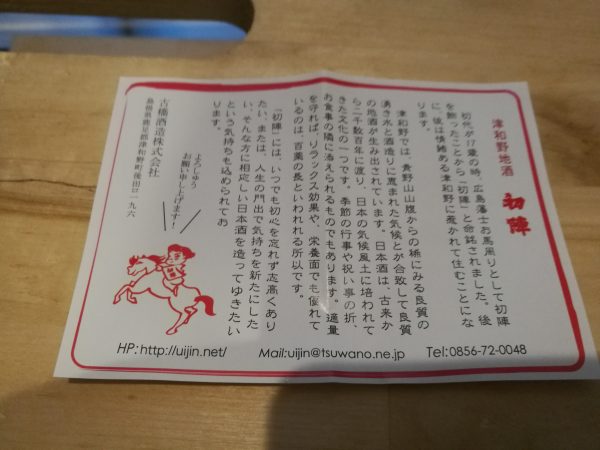 津和野地酒 初陣
初代が17歳の時、広島藩士お馬周りとして初陣
を飾ったことから「初陣」と命名されました。後
に、彼は情緒ある津和野に惹かれて住むことにな
ります。
津和野では、青野山山腹からの稀にみる良質の
湧き水と酒造りに恵まれた気候とが合致して良質
の地酒が生み出されています。日本酒は、古来か
ら二千数百年に渡り、日本の気候風土に培われて
きた文化の一つです。季節の行事や祝い事の折、
お食事の隣に添えられるものでもあります。適量
を守れば、リラックス効果や、栄養面でも優れて
いるのは、百薬の長といわれれる所以です。
「初陣」には、いつでも初心を忘れず志高くあり
たい、または、人生の門出で気持ちを新たにした
い、そんな方に相応しい日本酒を造ってゆきたい
という気持ちも込められてお
ります。
よろしゅう
お願い申し上げます!
古橋酒造株式会社
島根県鹿足郡津和野町後田ロ一九六
HP:http://uijin.net/ Mail:uijin@tsuwano.ne.jp Tel:0856-72-0048